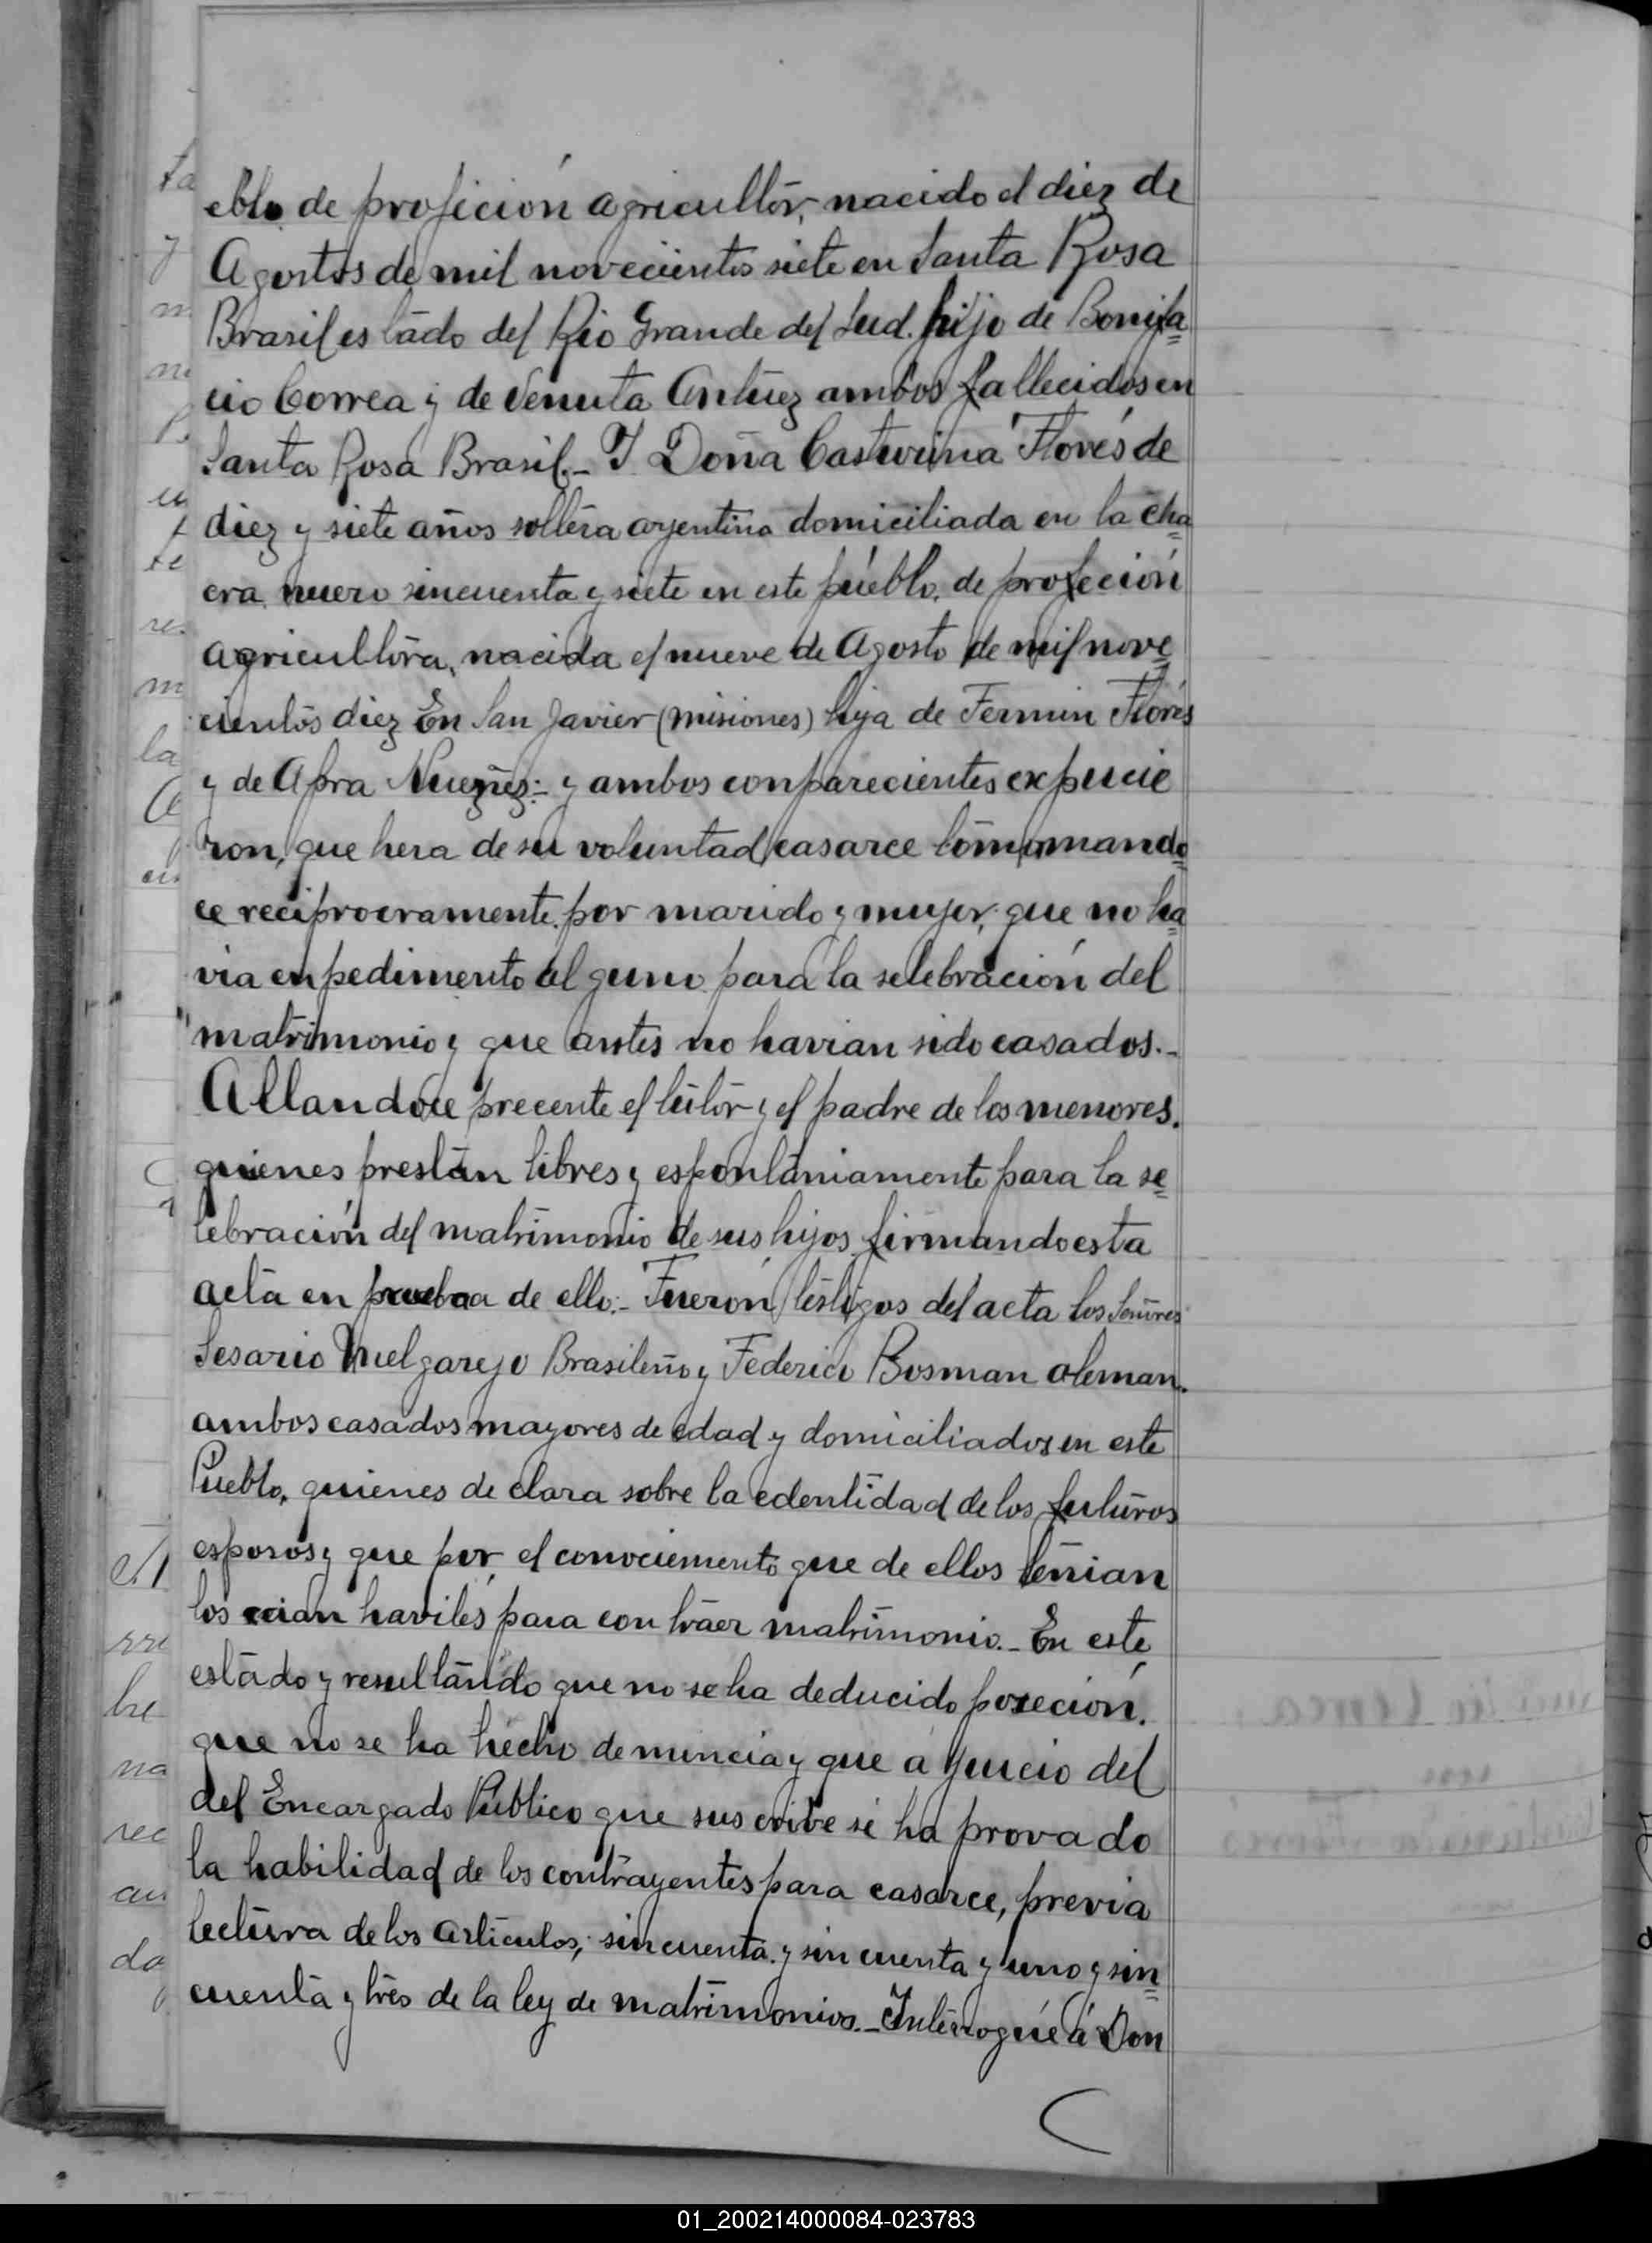 eblo de proficion agricultor, nacido el diez de
Agostos de mil novecientos siete en Santa Rosa
Brasil estado del Rio Grande del Sud. hijo de Bonifa=
cio Correa y de Venuta Antuez ambos fallecidos en
Santa Rosa Brasil.- I Doña Casturina Flores de
diez y siete años soltera argentina domiciliada en la cha=
cra nuero sincuenta y siete en este pueblo, de profecion
agricultora, nacida el nueve de Agosto de mil nove=
cientos diez En San Javier (misiones) hija de Fermin Flores
y de Apra :- y ambos conparecientes expucie
ron, que hera de su voluntad casarce tomando=
ce reciprocramente por marido y mujer, que no ha=
via enpedimento alguno para la selebracion del
matrimonio y que antes no havian sido casados.-
Allandoce precente el tutor y el padre de los menores.
quienes prestan libres y espontaniamente para la se=
lebracion del matrimonio de sus hijos firmando esta
acta en prueba de ello:- Fueron testigos del acta los Señores
Sesario Melgarejo Brasileño y Federico Bosman aleman.
ambos casados mayores de edad y domiciliados en este
Pueblo, quienes de clara sobre la edentidad de los futuros
esposos y que por el conociemento que de ellos tenian
los crian haviles para contraer matrimonio.- En este
estado y resultando que no se ha deducido posecion.
que no se ha hecho denuncia y que a juicio del
del Encargado Publico que suscrive se ha provado
la habilidad de los contrayentes para casarce, previa
lectura de los articulos, sincuenta y sincuenta y uno y sin=
cuenta y tres de la ley de matrimonios.- Interrogué á Don
01_200214000084-023783